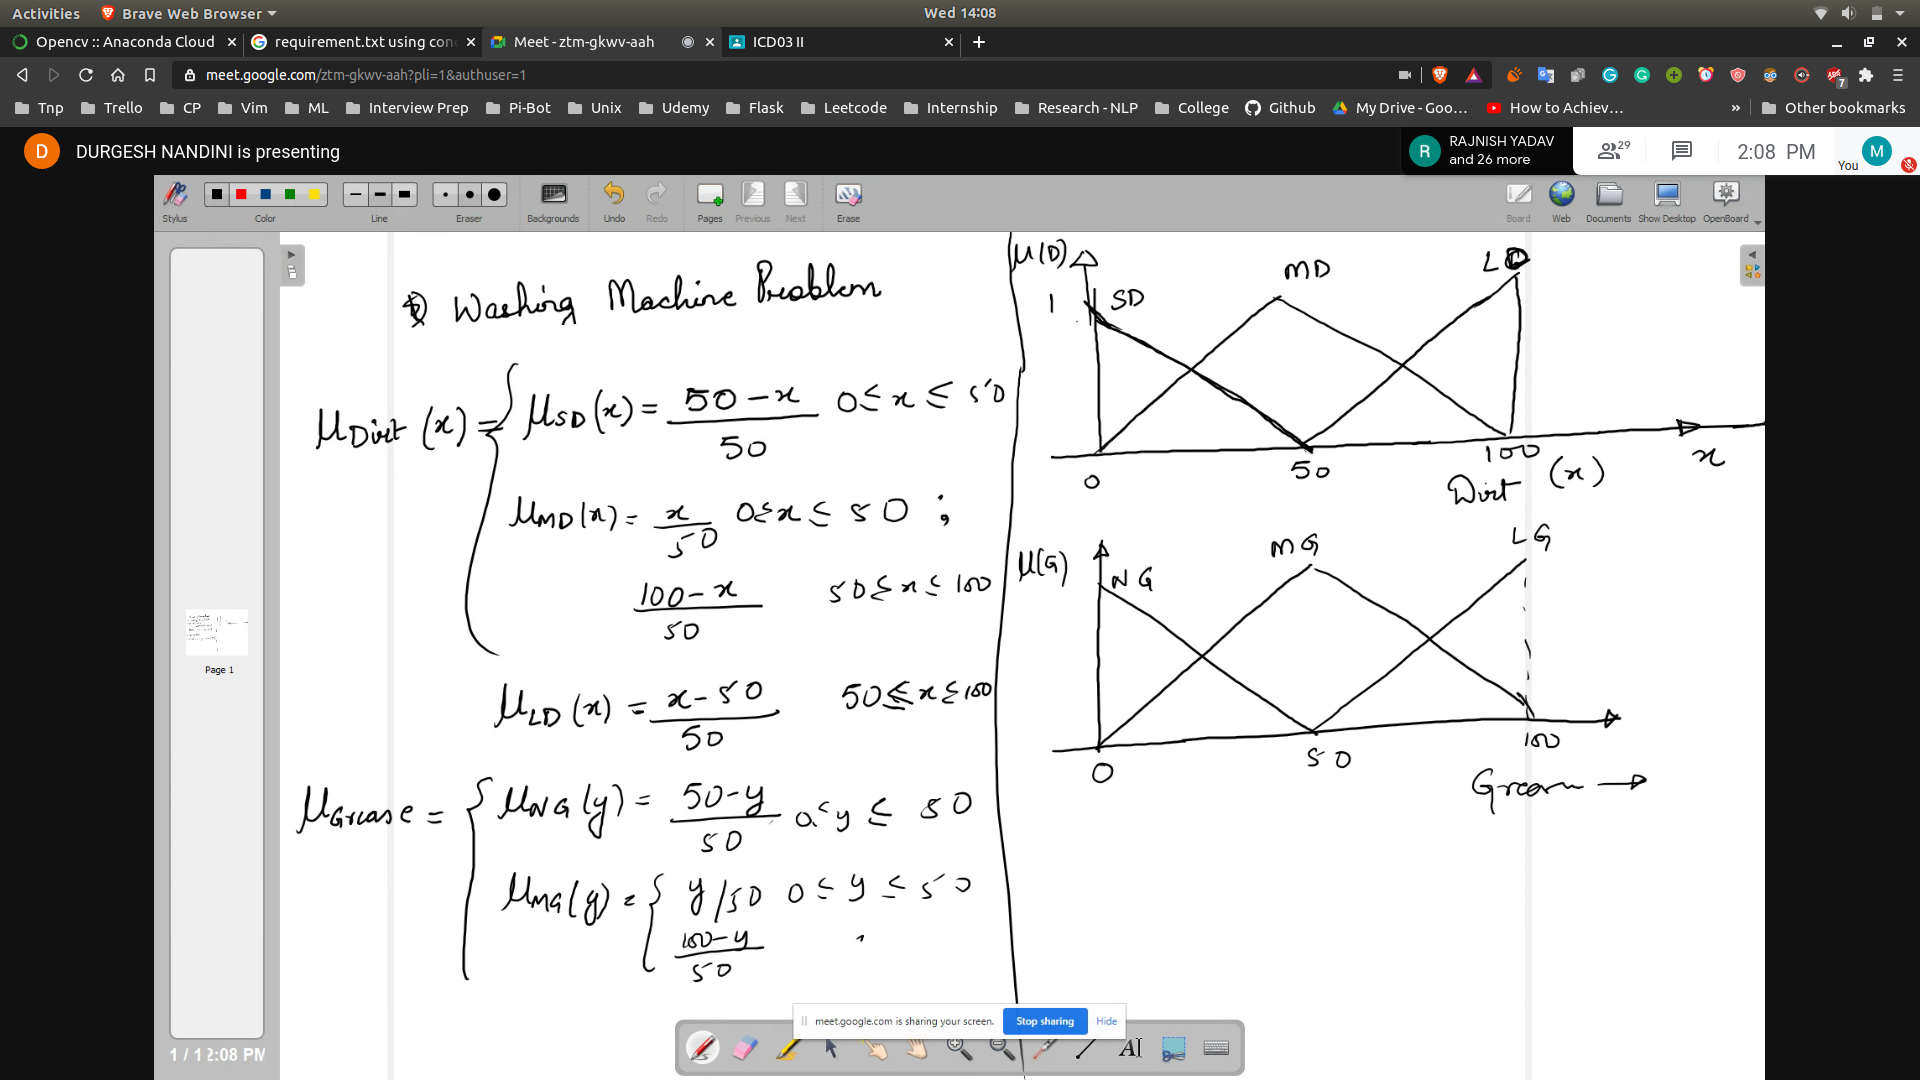 Activities
Brave Web Browser
Wed 14:08
Opencv :: Anaconda Cloud
requirement.txt using con
Meet - ztm-gkwv-aah
ICD03 II
meet.google.com/ztm-gkwv-aah?pli=1&authuser=1
7
Tnp
Trello
CP
Vim
ML
Interview Prep
Pi-Bot
Unix
Udemy
Flask
Leetcode
Internship
Research - NLP
College
Github
My Drive - Goo...
How to Achiev...
»
Other bookmarks
D
DURGESH NANDINI is presenting
R
RAJNISH YADAV
and 26 more
29
2:08 PM
You
M
Stylus
Color
Line
Eraser
Backgrounds
Undo
Redo
Pages
Previous
Next
Erase
Board
Web
Documents
Show Desktop
OpenBoard
Page 1
1 / 1 2:08 PM
Washing Machine Problem
μDirt (x) =
μSD(x) = (50 - x)/50 0 ≤ x ≤ 50
μMD(x) = x/50 0 ≤ x ≤ 50 ;
(100 - x)/50 50 ≤ x ≤ 100
μLD(x) = (x - 50)/50 50 ≤ x ≤ 100
μGrease =
μNG(y) = (50 - y)/50 0 ≤ y ≤ 50
μMG(y) = { y/50 0 ≤ y ≤ 50
(100 - y)/50
μ(D)
1
SD
MD
LD
0
50
100
x
Dirt (x)
μ(G)
NG
MG
LG
0
50
100
meet.google.com is sharing your screen.
Stop sharing
Hide